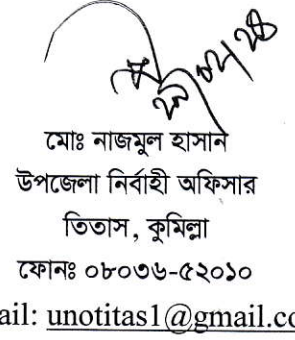 মোঃ নাজমুল হাসান
উপজেলা নির্বাহী অফিসার
তিতাস, কুমিল্লা
ফোনঃ ০৮০৩৬-৫২০১০
ail: unotitas1@gmail.co